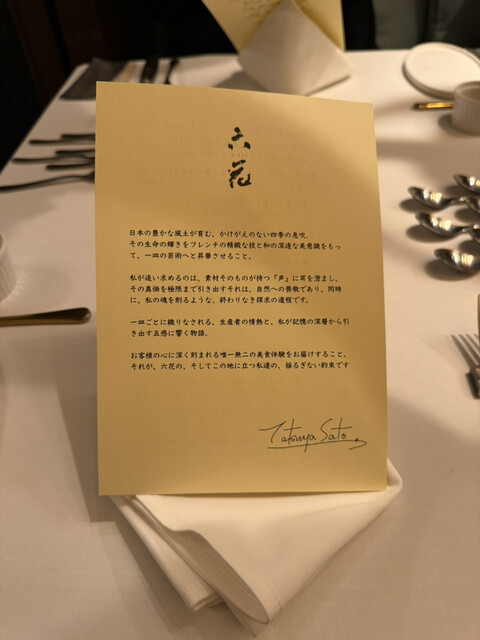 六花
日本の豊かな風土が育む、かけがえのない四季の息吹。
その生命の輝きをフレンチの精緻な技と和の深遠な美意識をもっ
て、一皿の芸術へと昇華させること。
私が追い求めるのは、素材そのものが持つ「声」に耳を澄まし、
その真価を極限まで引き出すそれは、自然への畏敬であり、同時
に、私の魂を削るような、終わりなき探求の道程です。
一皿ごとに織りなされる、生産者の情熱と、私が記憶の深層から引
き出す五感に響く物語。
お客様の心に深く刻まれる唯一無二の美食体験をお届けすること、
それが、六花の、そしてこの地に立つ私達の、揺るぎない約束です
Tatsuya Sato